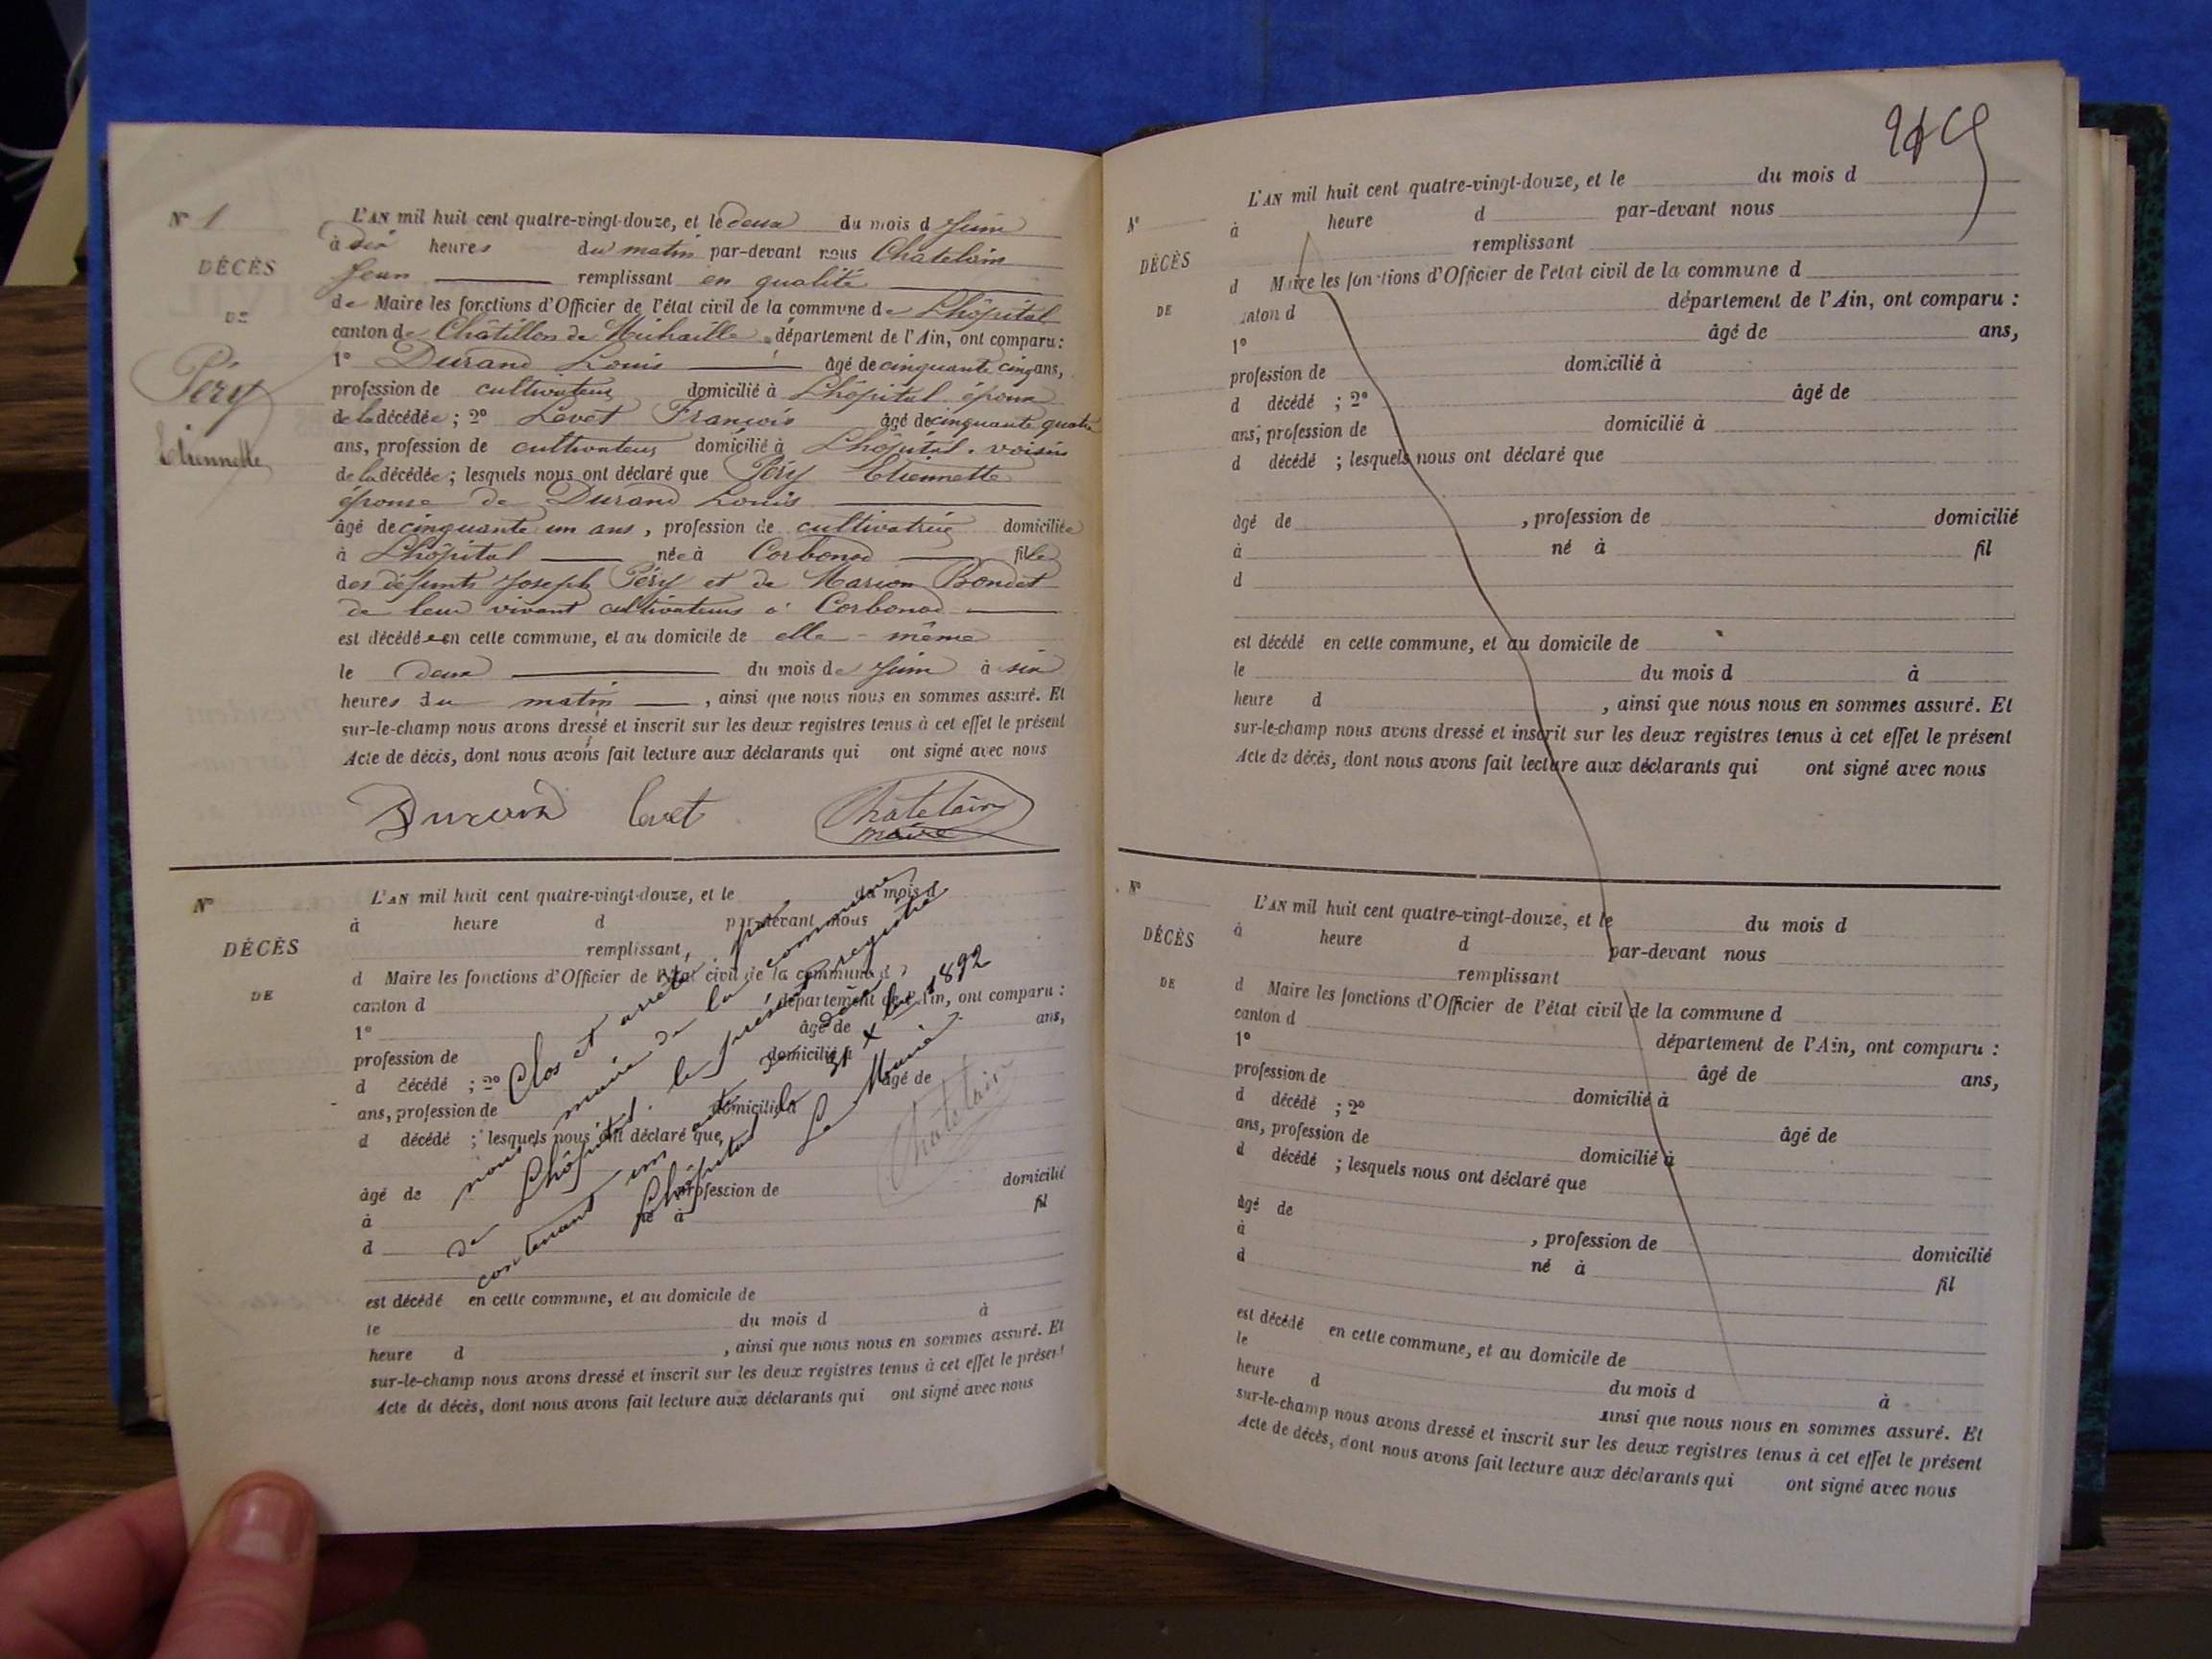 N° 1
DÉCÈS
DE
Péry
Etiennette
L'AN mil huit cent quatre-vingt-douze, et le deux du mois d Juin
à dix heures du matin par-devant nous Chatelain
Jean remplissant en qualité
de Maire les fonctions d'Officier de l'état civil de la commune de Lhôpital
canton de Châtillon de Michaille, département de l'Ain, ont comparu :
1° Durand Louis âgé de cinquante cinq ans,
profession de cultivateur domicilié à Lhôpital époux
de la décédée ; 2° Levet François âgé de cinquante quatre
ans, profession de cultivateur domicilié à Lhôpital, voisin
de la décédée ; lesquels nous ont déclaré que Péry Etiennette
épouse de Durand Louis
âgé de cinquante un ans, profession de cultivatrice domiciliée
à Lhôpital née à Corbonod fille
des défunts Joseph Péry et de Marion Bondet
de leur vivant cultivateurs à Corbonod
est décédée en cette commune, et au domicile de elle-même
le deux du mois de Juin à six
heures du matin, ainsi que nous nous en sommes assuré. Et
sur-le-champ nous avons dressé et inscrit sur les deux registres tenus à cet effet le présent
Acte de décès, dont nous avons fait lecture aux déclarants qui ont signé avec nous
Durand Levet Chatelain
maire
N°
DÉCÈS
DE
L'AN mil huit cent quatre-vingt-douze, et le du mois d
à heure d par-devant nous
remplissant
d Maire les fonctions d'Officier de l'état civil de la commune d
canton d département de l'Ain, ont comparu :
1° âgé de ans,
profession de domicilié à
d décédé ; 2° âgé de
ans, profession de domicilié à
d décédé ; lesquels nous ont déclaré que
âgé de profession de domicilié
à né à fil
d
est décédé en cette commune, et au domicile de
le du mois d à
heure d , ainsi que nous nous en sommes assuré. Et
sur-le-champ nous avons dressé et inscrit sur les deux registres tenus à cet effet le présent
Acte de décès, dont nous avons fait lecture aux déclarants qui ont signé avec nous
Clos et arrêté par
nous maire de la commune
de Lhôpital, le présent registre
contenant un acte de décès
Lhôpital le 31 Xbre 1892
Le Maire
Chatelain
L'AN mil huit cent quatre-vingt-douze, et le du mois d
N° à heure d par-devant nous
DÉCÈS remplissant
d Maire les fonctions d'Officier de l'état civil de la commune d
DE anton d département de l'Ain, ont comparu :
1° âgé de ans,
profession de domicilié à
d décédé ; 2° âgé de
ans, profession de domicilié à
d décédé ; lesquels nous ont déclaré que
âgé de , profession de domicilié
à né à fil
d
est décédé en cette commune, et au domicile de
le du mois d à
heure d , ainsi que nous nous en sommes assuré. Et
sur-le-champ nous avons dressé et inscrit sur les deux registres tenus à cet effet le présent
Acte de décès, dont nous avons fait lecture aux déclarants qui ont signé avec nous
N°
DÉCÈS
DE
L'AN mil huit cent quatre-vingt-douze, et le du mois d
à heure d par-devant nous
remplissant
d Maire les fonctions d'Officier de l'état civil de la commune d
canton d département de l'Ain, ont comparu :
1° âgé de ans,
profession de domicilié à
d décédé ; 2° âgé de
ans, profession de domicilié à
d décédé ; lesquels nous ont déclaré que
âgé de , profession de domicilié
à né à fil
d
est décédé en cette commune, et au domicile de
le du mois d à
heure d ainsi que nous nous en sommes assuré. Et
sur-le-champ nous avons dressé et inscrit sur les deux registres tenus à cet effet le présent
Acte de décès, dont nous avons fait lecture aux déclarants qui ont signé avec nous